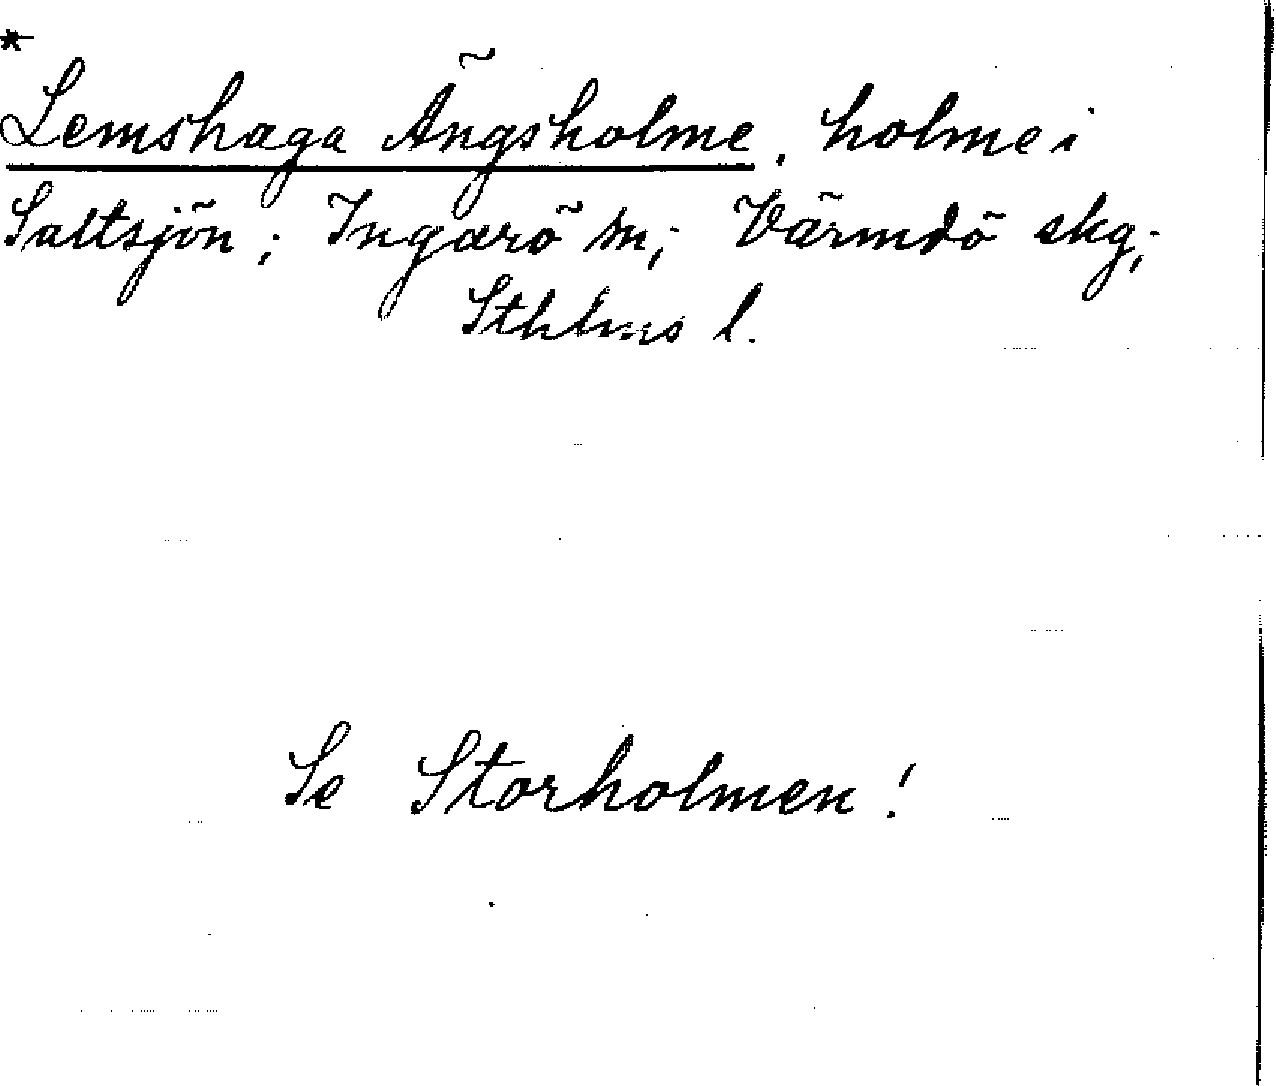 *
Lemshaga Ängsholme, holme i
Saltsjön; Ingarö sn; Värmdö skg;
Sthlms l.
Se Storholmen!